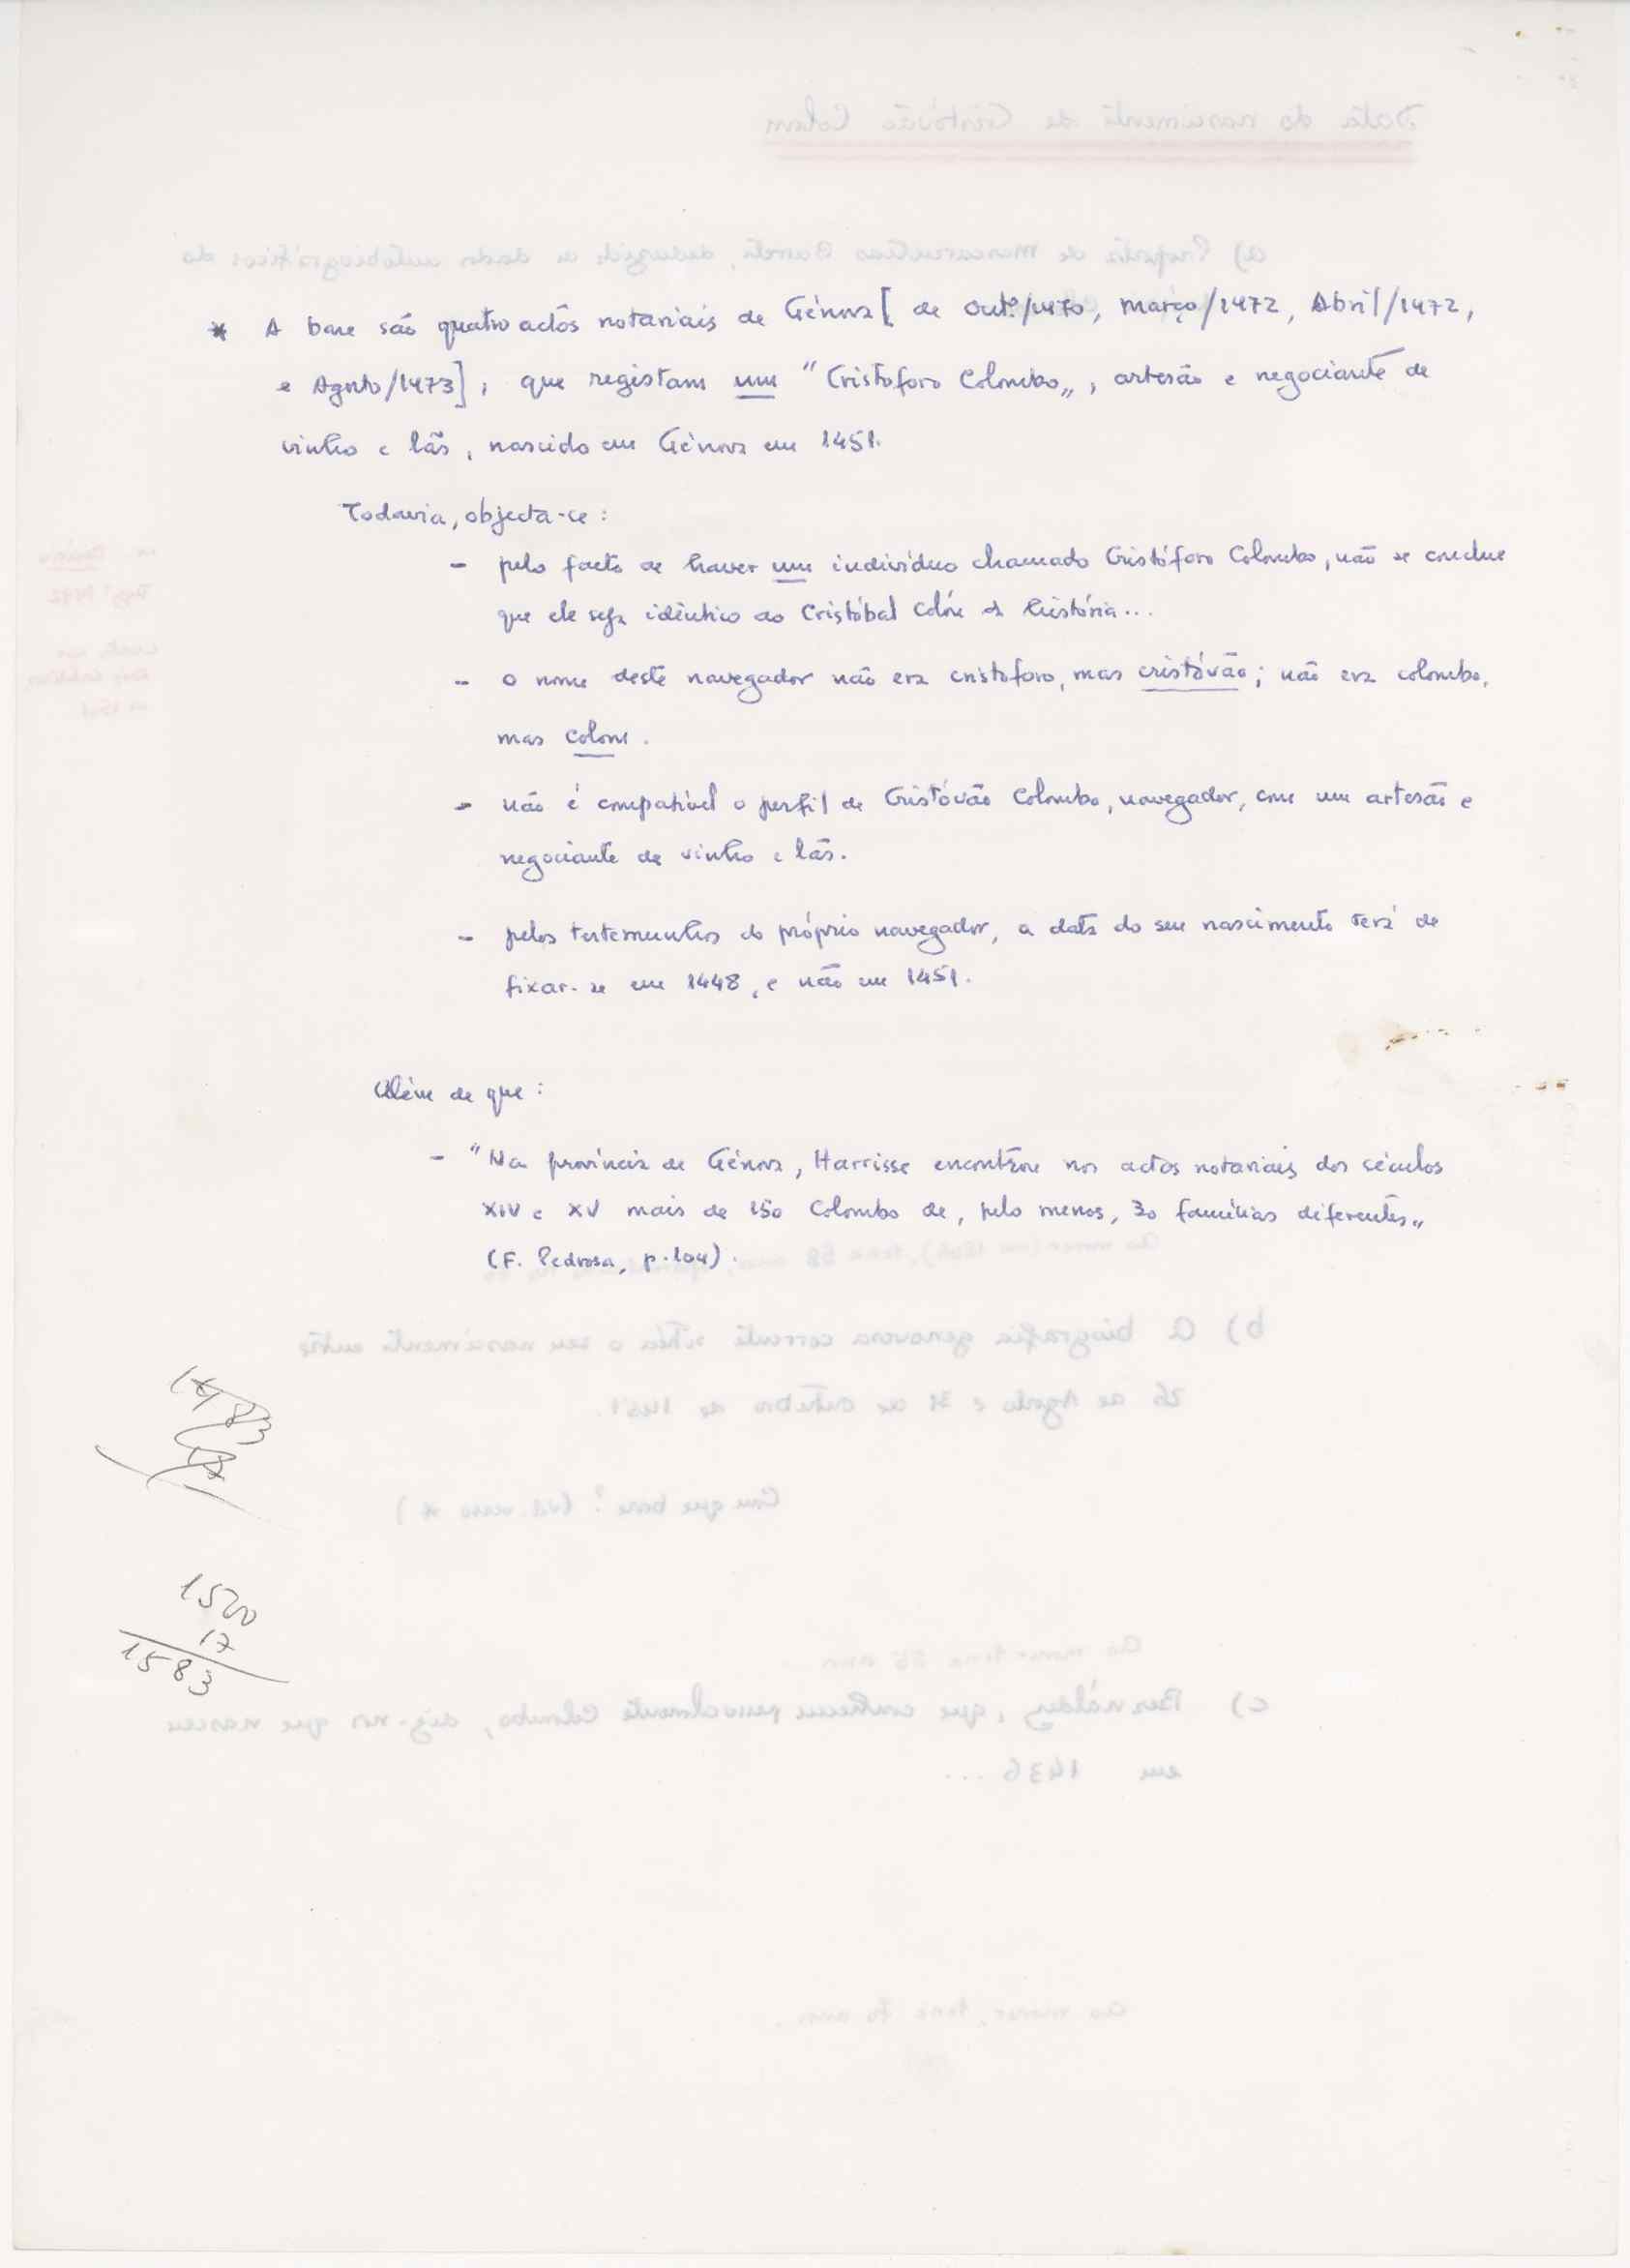 * A base são quatro actos notariais de Génova [ de Outº/1470, Março/1472, Abril/1472,
e Agosto/1473], que registam um "Cristoforo Colombo„, artesão e negociante de
vinho e lãs, nascido em Génova em 1451.
Todavia, objecta-se:
- pelo facto de haver um indivíduo chamado Cristóforo Colombo, não se conclue
que ele seja idêntico ao Cristóbal Colón da história...
- o nome deste navegador não era cristoforo, mas cristóvão; não era colombo,
mas colom.
- não é compatível o perfil de Cristóvão Colombo, navegador, com um artesão e
negociante de vinho e lãs.
- pelos testemunhos do próprio navegador, a data do seu nascimento terá de
fixar-se em 1448, e não em 1451.
Além de que:
- "Na província de Génova, Harrisse encontrou nos actos notariais dos séculos
XIV e XV mais de 150 Colombo de, pelo menos, 30 famílias diferentes„
(F. Pedrosa, p.104).
1500
17
1583